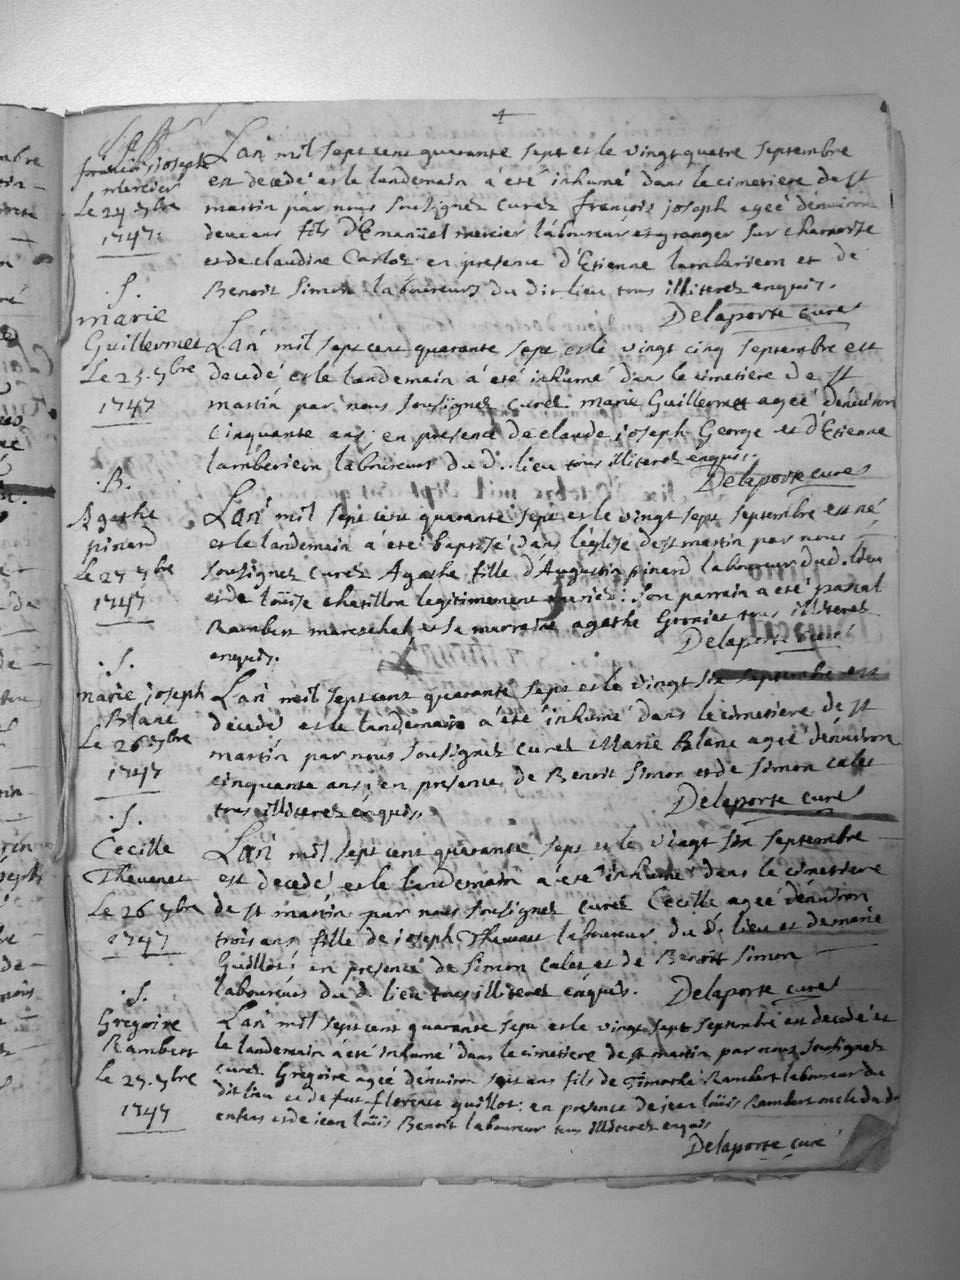 4
françois joseph
mercier
Le 24 7bre
1747
L'an mil sept cent quarante sept et le vingt quatre septembre
est decedé et le landemain a été inhumé dans le cimetiere de st
martin par nous soussignez curez françois joseph ageé denviron
deux ans fils d'Emanüel mercier laboureur et granger sur
et de claudine Carlos en presence d'Etienne lamberieon et de
Benoit Simon laboureurs du dit lieu tous illiterez enquis.
Delaporte curé
.S.
marie
Guillermet
Le 25. 7bre
1747
L'an mil sept cent quarante sept et le vingt cinq septembre est
decedé et le landemain a été inhumé dans le cimetiere de st
martin par nous soussignez curez marie Guillermet ageé denviron
cinquante ans en presence de claude joseph George et d'Etienne
lamberieon laboureurs du d. lieu tous illiterez enquis.
Delaporte curé
B.
Agathe
pinard
Le 27 7bre
1747
L'an mil sept cent quarante sept et le vingt sept septembre est né
et le landemain a été baptisé dans l'eglise de st martin par nous
soussignez curez Agathe fille d'Augustin pinard laboureur du d. lieu
et de loüise chatillon legitimement mariez: son parrain a été pascal
Rambert mareschal et sa marraine agathe tous illiterez
enquis.
Delaporte curé
.S.
marie joseph
Blanc
Le 26 7bre
1747
L'an mil sept cent quarante sept et le vingt six septembre est
decedé et le landemain a été inhumé dans le cimetiere de st
martin par nous soussignez curez Marie Blanc ageé denviron
cinquante ans; en presence de Benoit Simon et de Simon calet
tous illiterez enquis.
Delaporte curé
.S.
Cecille
Thevenet
Le 26 7bre
1747
L'an mil sept cent quarante sept et le vingt six septembre
est decedé et le landemain a été inhumé dans le cimetiere
de st martin par nous soussignez curez Cecille ageé denviron
trois ans fille de joseph Thevenet laboureur du d. lieu et de marie
Guillot: en presence de Simon calet et de Benoit Simon
laboureurs du d. lieu tous illiterez enquis.
Delaporte curé
.S.
Gregoire
Rambert
Le 27. 7bre
1747
L'an mil sept cent quarante sept et le vingt sept septembre est decedé et
le landemain a été inhumé dans le cimetiere de st martin par nous soussignez
curez Gregoire ageé denviron sept ans fils de Timothé Rambert laboureur du
dit lieu et de fut florence guillot: en presence de jean loüis Rambert oncle du d.
enfens et de jean loüis Benoit laboureur tous illiterez enquis
Delaporte curé